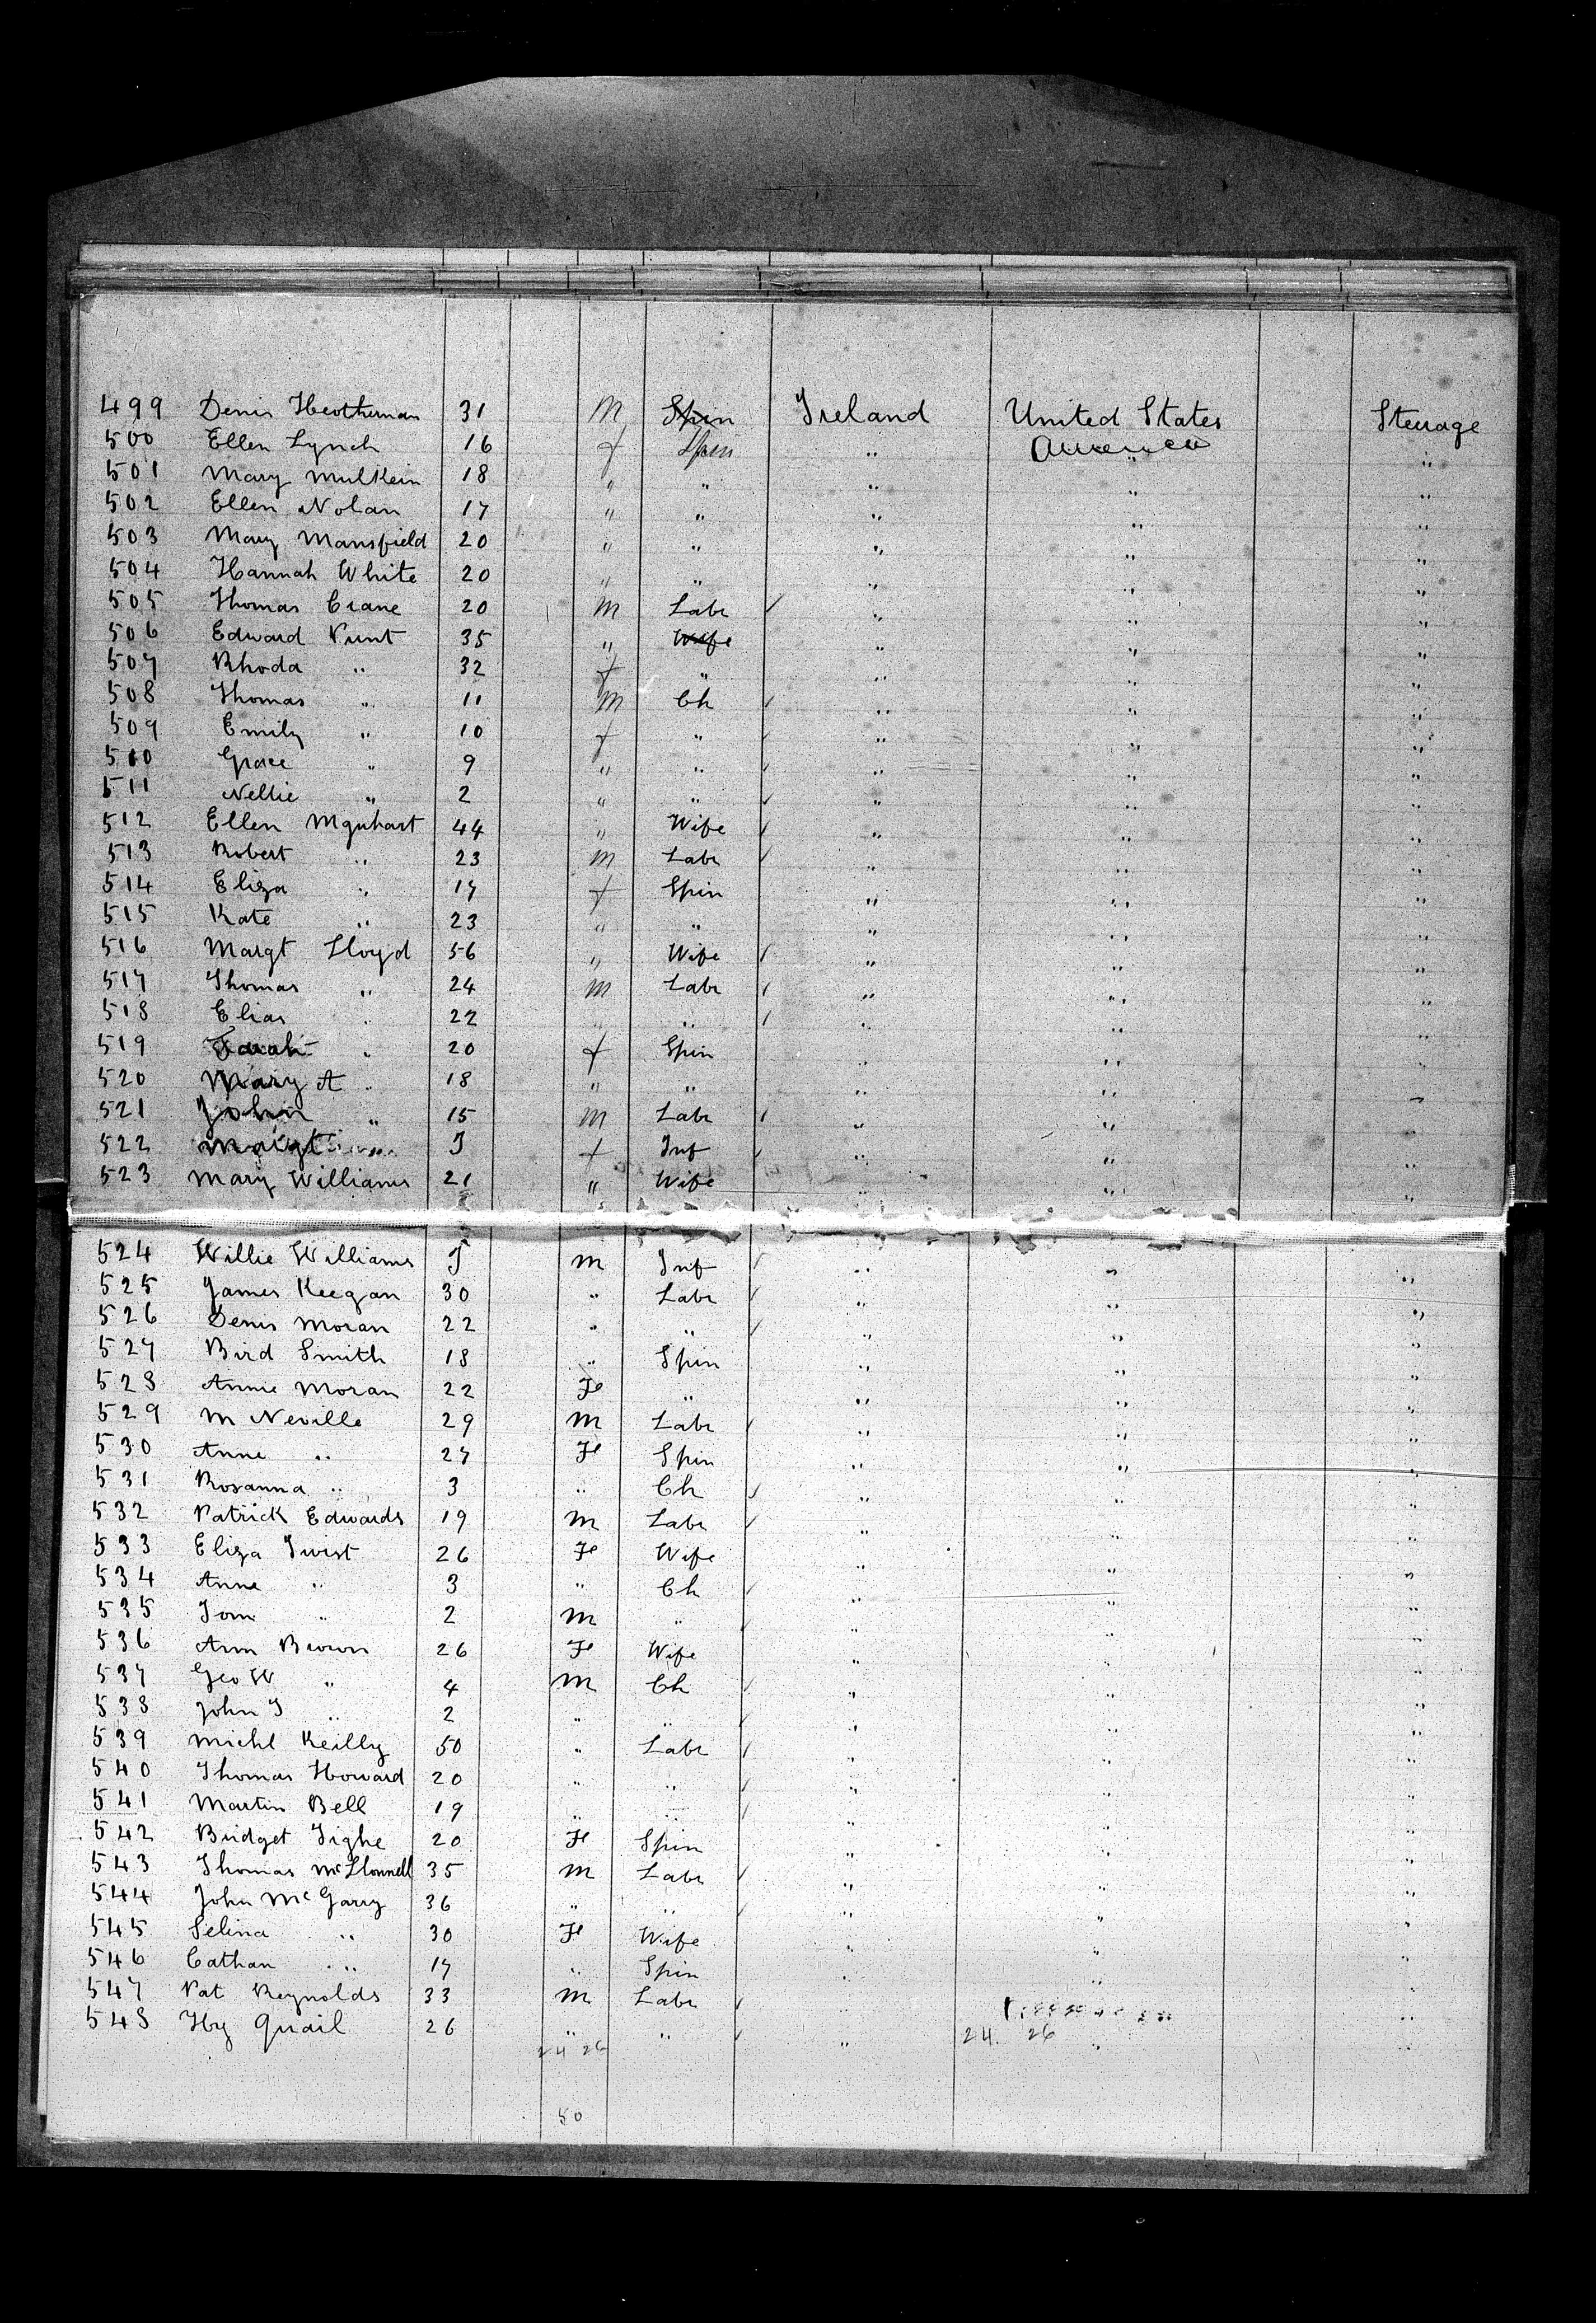 499 Denis Heotherman 31 M Spin Ireland United States Steerage
500 Ellen Lynch 16 f Spin " America " "
501 Mary Mulkein 18 " " " " "
502 Ellen Nolan 17 " " " " "
503 Mary Mansfield 20 " " " " "
504 Hannah White 20 " " " " "
505 Thomas Crane 20 M Labr " " "
506 Edward Punt 35 " Wife " " "
507 Rhoda " 32 f " " " "
508 Thomas " 11 M Ch " " "
509 Emily " 10 f " " " "
510 Grace " 9 " " " " "
511 Nellie " 2 " " " " "
512 Ellen Mquhart 44 " Wife " " "
513 Robert " 23 M Labr " " "
514 Eliza " 17 f Spin " " "
515 Kate " 23 " " " " "
516 Margt Lloyd 56 " Wife " " "
517 Thomas " 24 M Labr " " "
518 Elias " 22 " " " " "
519 " 20 f Spin " " "
520 Mary A " 18 " " " " "
521 John " 15 M Labr " " "
522 Margt " I f Inf " " "
523 Mary Williams 21 " Wife " " "
524 Willie Williams I M Inf " " "
525 James Keegan 30 " Labr " " "
526 Denis Moran 22 " " " " "
527 Bird Smith 18 " Spin " " "
528 Annie Moran 22 Fe " " " "
529 M Neville 29 M Labr " " "
530 Anne " 27 Fe Spin " " "
531 Rosanna " 3 " Ch " " "
532 Patrick Edwards 19 M Labr " " "
533 Eliza Twist 26 Fe Wife " " "
534 Anne " 3 " Ch " " "
535 Tom " 2 M " " " "
536 Ann Brown 26 Fe Wife " " "
537 Geo W " 4 M Ch " " "
538 John T " 2 " " " " "
539 Michl Reilly 50 " Labr " " "
540 Thomas Howard 20 " " " " "
541 Martin Bell 19 " " " " "
542 Bridget Tighe 20 Fe Spin " " "
543 Thomas 35 M Labr " " "
544 John McGarry 36 " " " " "
545 Selina " 30 Fe Wife " " "
546 Cathan " 17 " Spin " " "
547 Pat Reynolds 33 M Labr " "
548 Hy Quail 26 " " " 24 26 " "
24 26
50